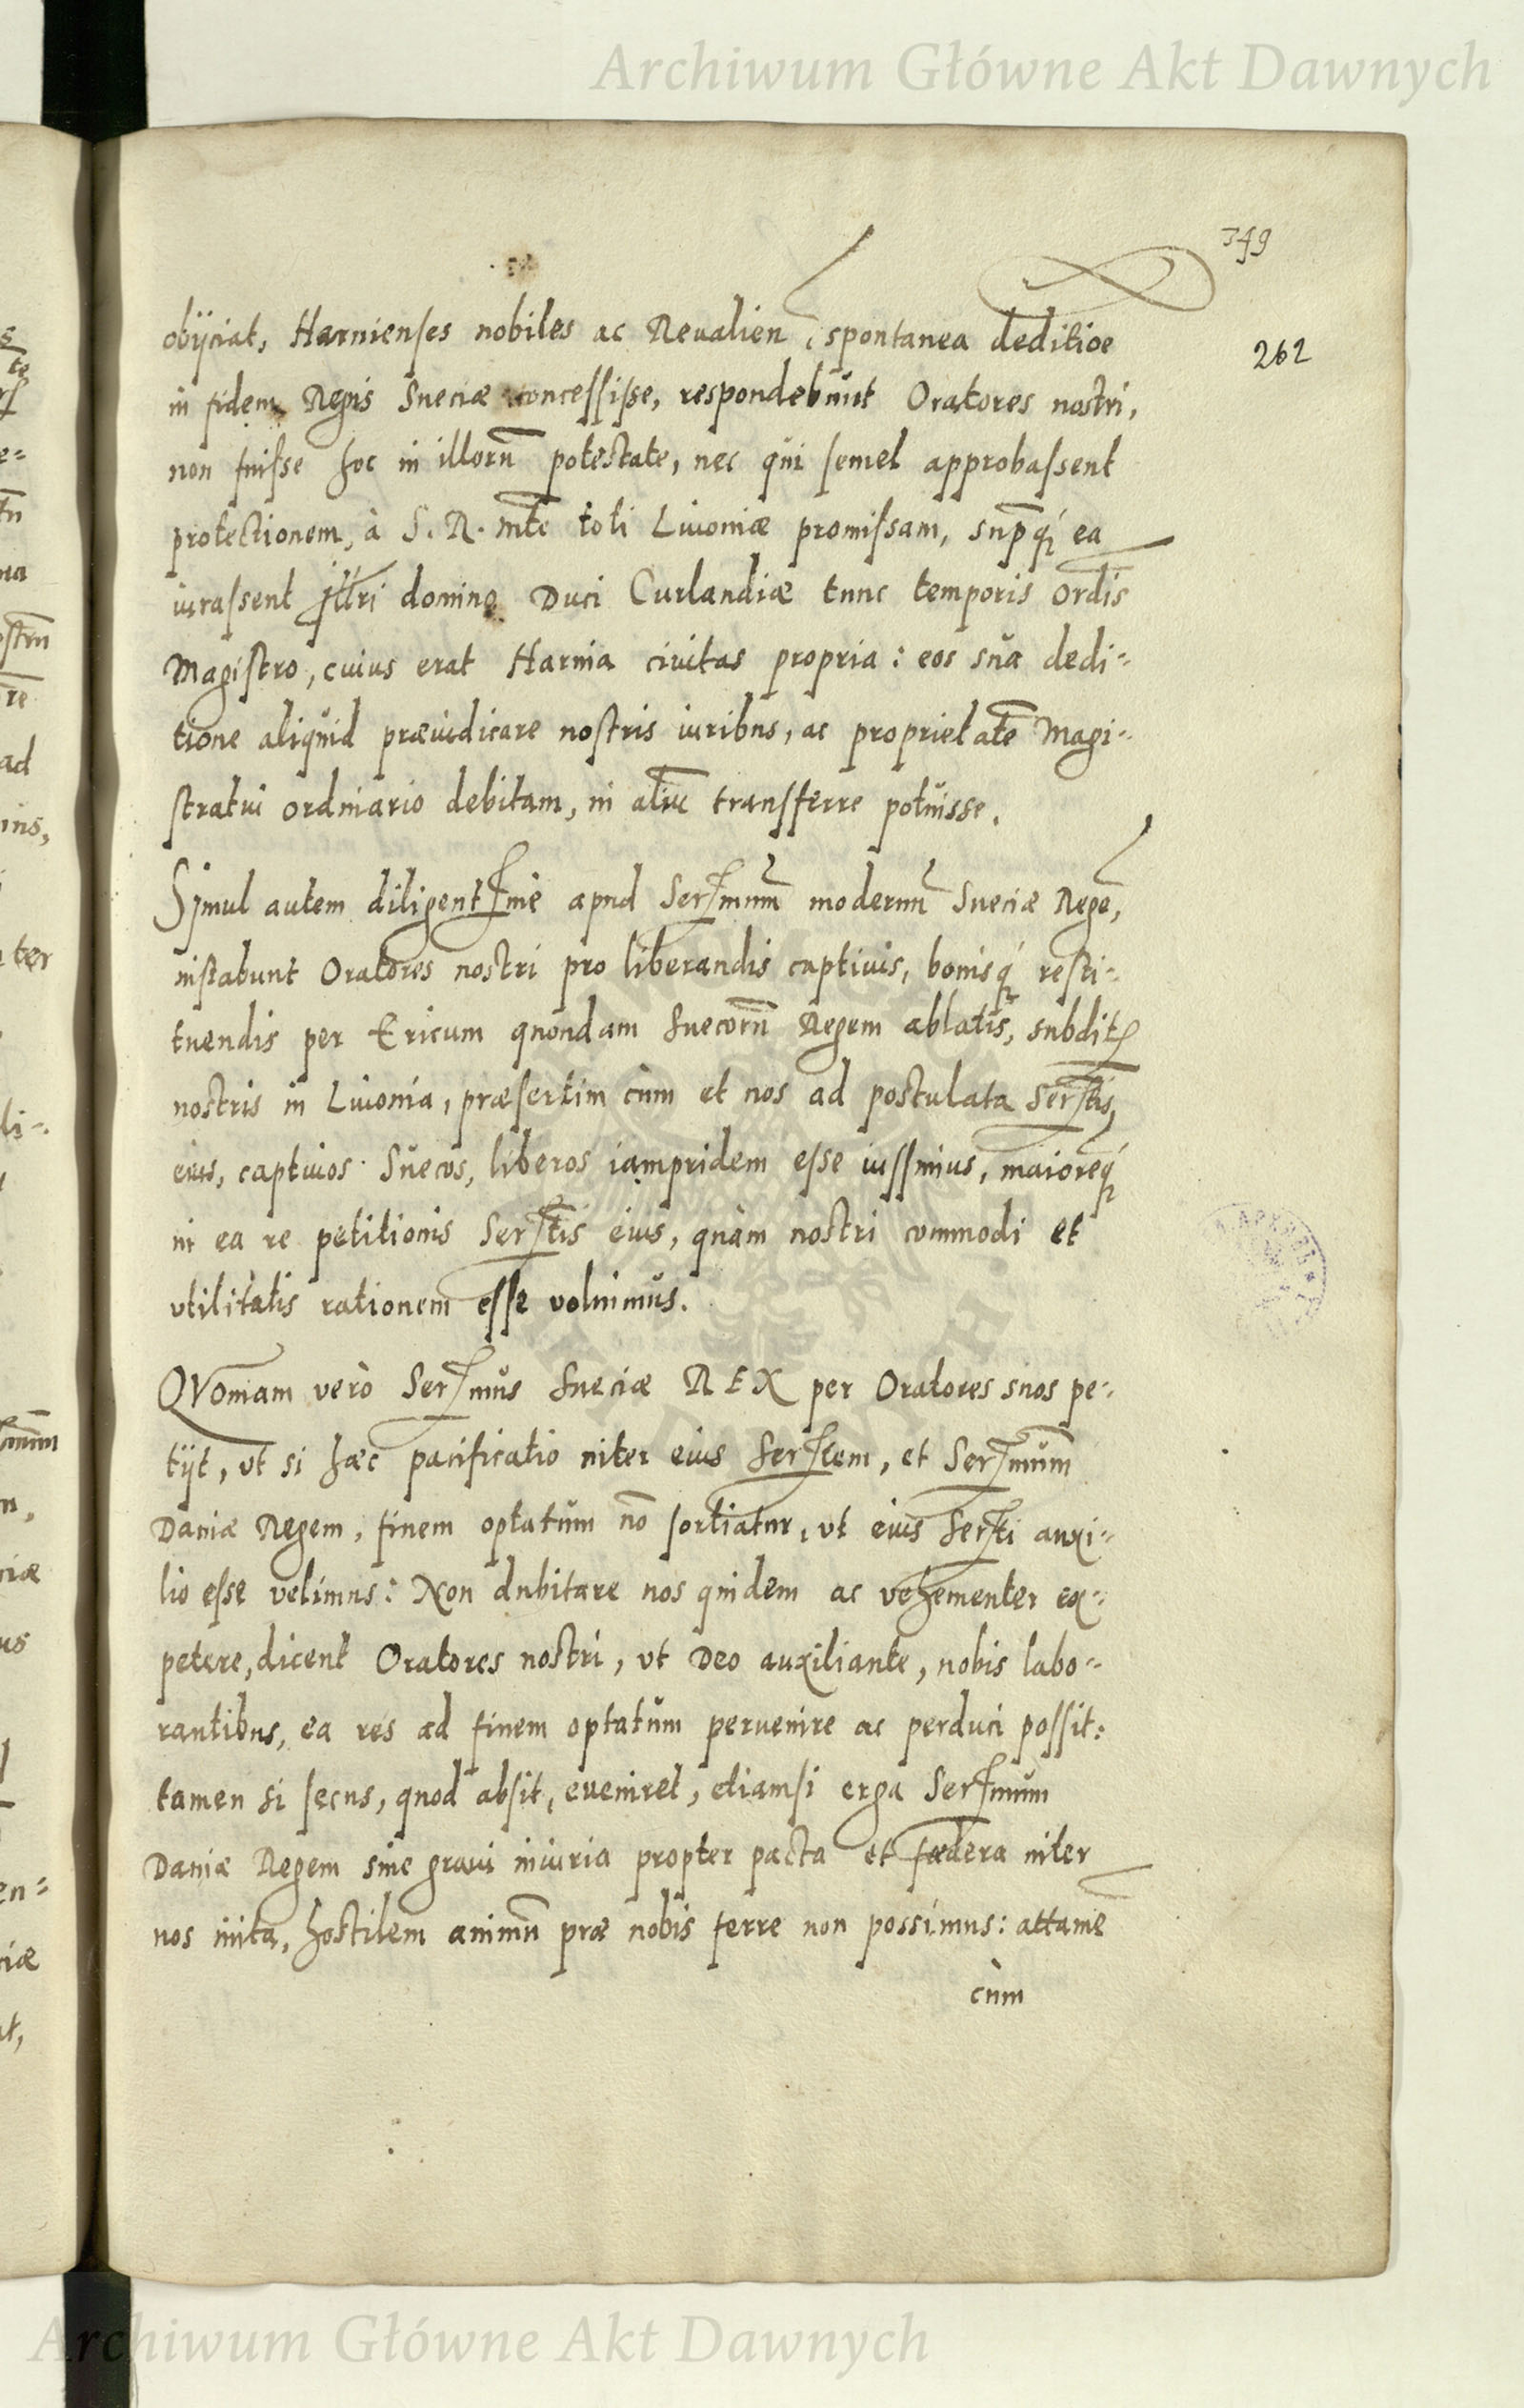 Archiwum Główne Akt Dawnych
349
262
obijciat, Harnienses nobiles ac Reualien, spontanea deditiōe
in fidem Regis Sueciæ concessisse, respondebunt Oratores nostri,
non fuisse hoc in illorū potestate, nec qui semel approbassent
protectionem, à S. R. Mte toti Liuoniæ promissam, supq́ ea
iurassent Illri domino Duci Curlandiæ tunc temporis Ordis
Magistro, cuius erat Harnia civitas propria: eos sua dedi-
tione aliquid præiudicare nostris iuribus, ac proprietatē Magi-
stratui ordinario debitam, in aliū transferre potuisse.
Simul autem diligentissime apud Sersmum modernū Sueciæ Regē,
instabunt Oratores nostri pro liberandis captiuis, bonisq́ resti-
tuendis per Ericum quondam Suecorū Regem ablatis, subditis
nostris in Liuonia, præsertim cùm et nos ad postulata Sertis,
eius, captiuos Suecos, liberos iampridem esse iussimus, maiorēq́
in ea re petitionis Sertis eius, quàm nostri commodi et
vtilitatis rationem esse voluimus.
QVoniam verò Sersmus Sueciæ REX per Oratores suos pe-
tijt, vt si hæc pacificatio inter eius Sertem, et Sersmum
Daniæ Regem, finem optatum nō sortiatur, vt eius Serti auxi-
lio esse velimus: Non dubitare nos quidem ac vehementer ex-
petere, dicent Oratores nostri, vt Deo auxiliante, nobis labo-
rantibus, ea res ad finem optatum peruenire ac perduci possit:
tamen si secus, quod absit, eueniret, etiamsi erga Sersmum
Daniæ Regem sine graui iniuria propter pacta et fœdera inter
nos inita, hostilem animū præ nobis ferre non possimus: attamē
cùm
Archiwum Główne Akt Dawnych